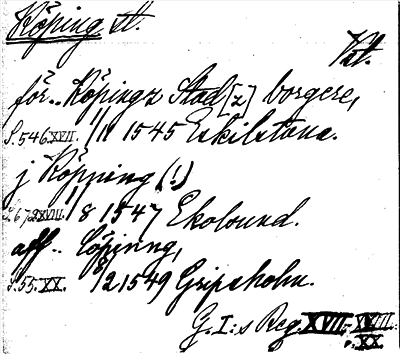 Köping st.
Vstt.
för.. Köpingz Stad[z] borgere,
S. 546. XVII. 1/11 1545 Eskilstuna.
j Köpping (!)
S. 672 XVIII. 1/8 1547 Ekolsund.
aff.. Cöpinng,
S. 55. XX. 8/2 1549 Gripsholm.
G. I:s Reg. XVII.- XVIII.
o. XX.